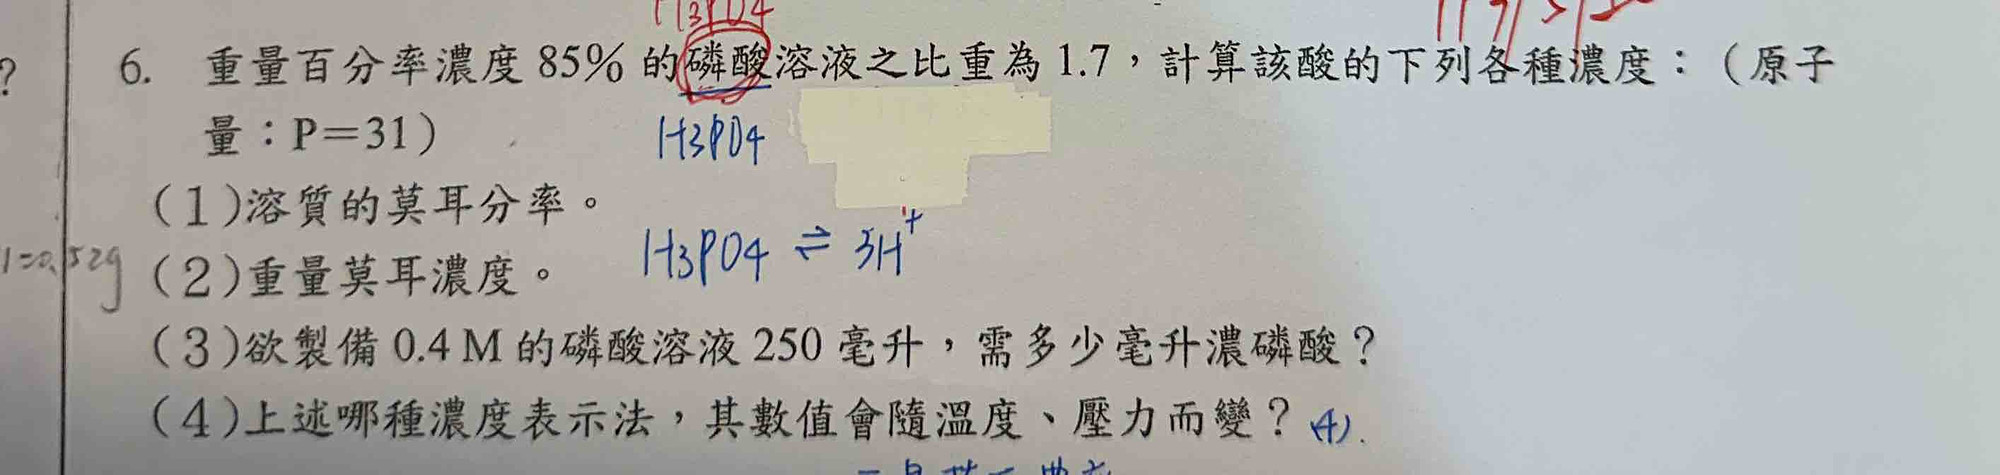 H3PO4
6. 重量百分率濃度 85% 的磷酸溶液之比重為 1.7,計算該酸的下列各種濃度:(原子
量:P=31)
H3PO4
(1)溶質的莫耳分率。
(2)重量莫耳濃度。
H3PO4 ⇌ 3H+
(3)欲製備 0.4 M 的磷酸溶液 250 毫升,需多少毫升濃磷酸?
(4)上述哪種濃度表示法,其數值會隨溫度、壓力而變? (4).